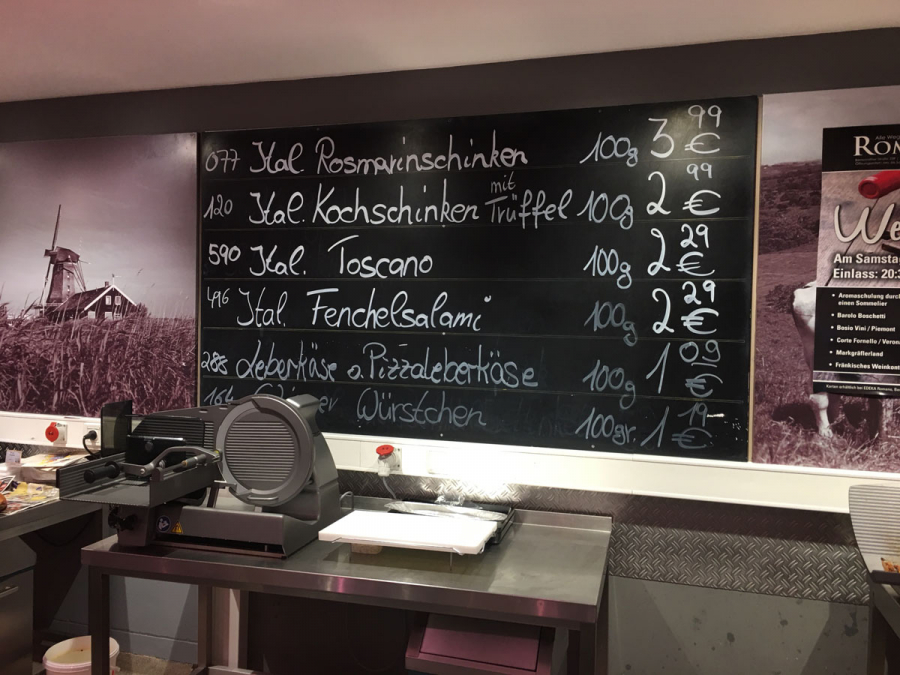 077 Ital. Rosmarinschinken 100g 3 99 €
120 Ital. Kochschinken mit Trüffel 100g 2 99 €
590 Ital. Toscano 100g 2 29 €
496 Ital. Fenchelsalami 100g 2 29 €
288 Leberkäse o. Pizzaleberkäse 100g 1 09 €
164 Würstchen 100gr. 1 19 €
Am Samsta
Einlass: 20:3
• Aromaschulung durc
einen Sommelier
• Barolo Boschetti
• Basio Vini / Piemont
• Corte Fornello / Veron
• Markgräflerland
• Fränkisches Weinkon